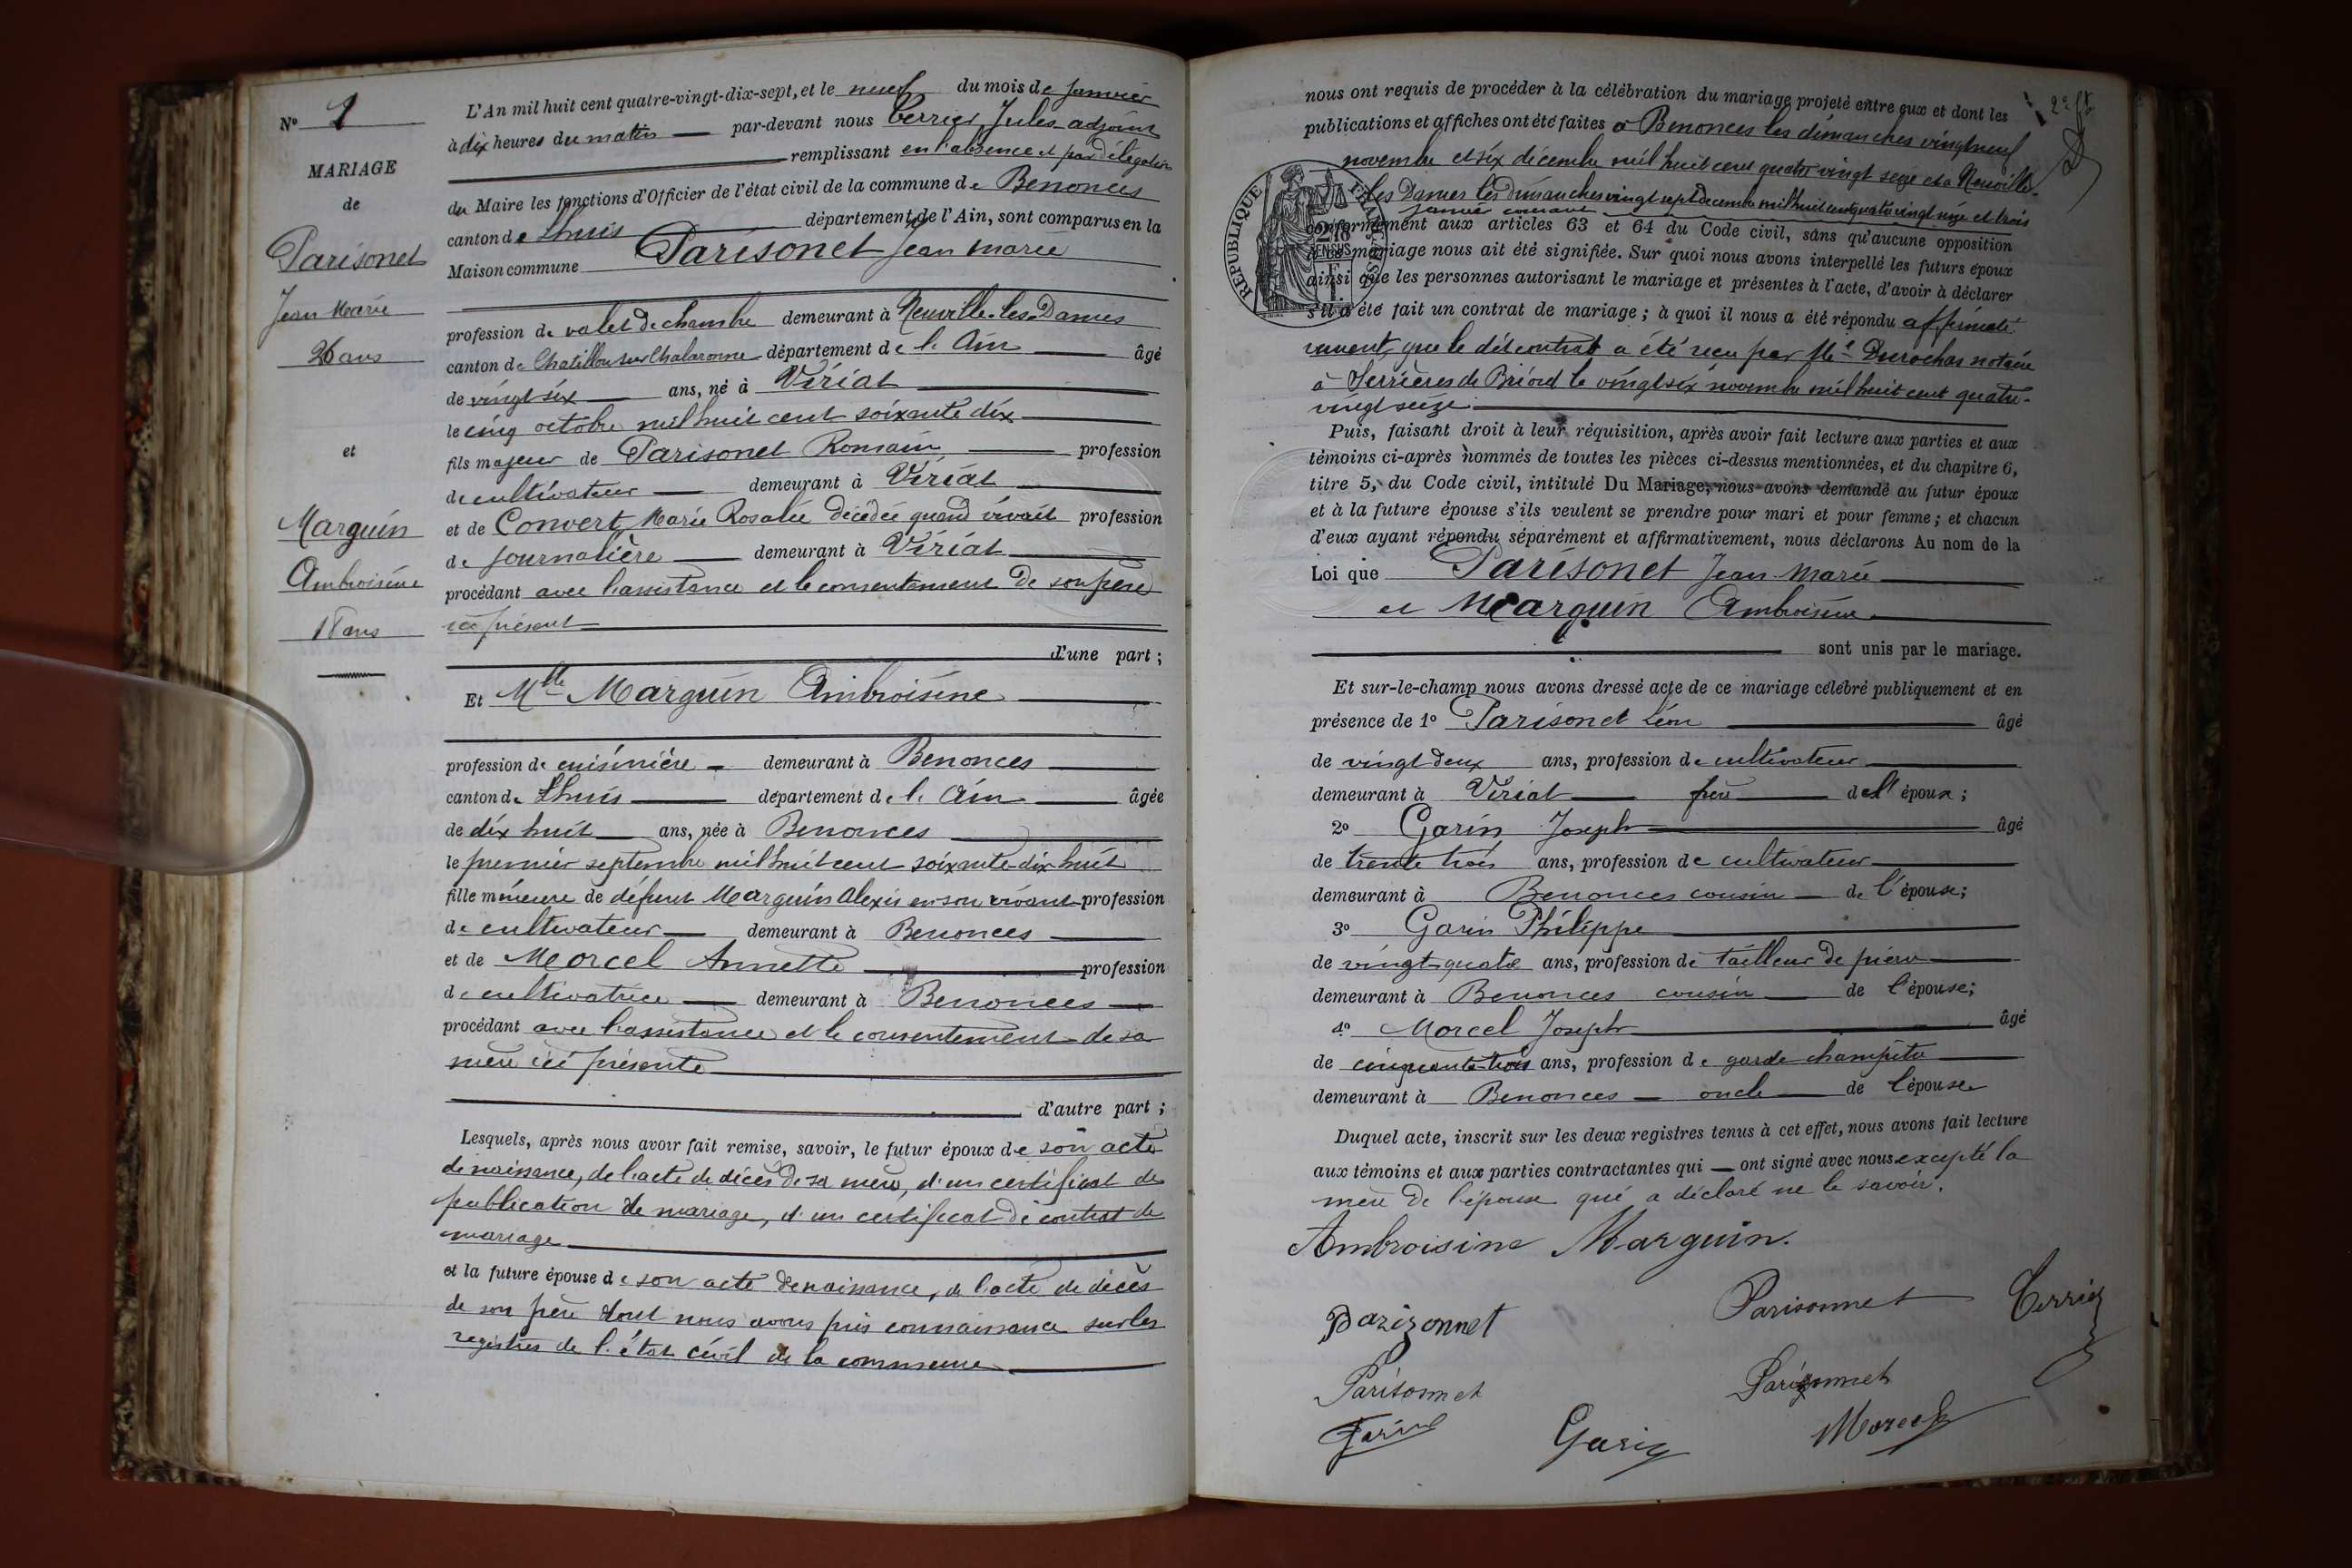 N° 1
MARIAGE
de
Parisonet
Jean Marie
26 ans
et
Marguin
Ambroisine
18 ans
L'An mil huit cent quatre-vingt-dix-sept, et le neuf du mois de janvier
à dix heures du matin par-devant nous Jules adjoint
remplissant en l'absence et par délégation
du Maire les fonctions d'Officier de l'état civil de la commune de Benonces
canton de Lhuis département de l'Ain, sont comparus en la
Maison commune Parisonet Jean Marie
profession de valet de chambre demeurant à Neuville-les-Dames
canton de Chatillon sur Chalaronne département de l'Ain âgé
de vingt six ans, né à Viriat
le cinq octobre mil huit cent soixante dix
fils majeur de Parisonet Romain profession
de cultivateur demeurant à Viriat
et de Convert Marie Rosalie décédée quand vivait profession
de journalière demeurant à Viriat
procédant avec l'assistance et le consentement de son père
ici présent
d'une part ;
Et Mlle Marguin Ambroisine
profession de cuisinière demeurant à Benonces
canton de Lhuis département de l'Ain âgée
de dix huit ans, née à Benonces
le premier septembre mil huit cent soixante-dix-huit
fille mineure de défunt Marguin Alexis en son vivant profession
de cultivateur demeurant à Benonces
et de Morcel Annette profession
de cultivatrice demeurant à Benonces
procédant avec l'assistance et le consentement de sa
mère ici présente
d'autre part ;
Lesquels, après nous avoir fait remise, savoir, le futur époux de son acte
de naissance, de l'acte de décès de sa mère, d'un certificat de
publication de mariage, d'un certificat de contrat de
mariage
et la future épouse de son acte de naissance, de l'acte de décès
de son père dont nous avons pris connaissance sur les
registres de l'état civil de la commune
nous ont requis de procéder à la célébration du mariage projeté entre eux et dont les
publications et affiches ont été faites à Benonces les dimanches vingt neuf
novembre et six décembre mil huit cent quatre vingt seize et à Neuville-
les Dames les dimanches vingt sept décembre mil huit cent quatre vingt seize et trois
janvier courant
conformément aux articles 63 et 64 du Code civil, sans qu'aucune opposition
à ce mariage nous ait été signifiée. Sur quoi nous avons interpellé les futurs époux
ainsi que les personnes autorisant le mariage et présentes à l'acte, d'avoir à déclarer
s'il a été fait un contrat de mariage ; à quoi il nous a été répondu affirmati-
vement, que le dit contrat a été reçu par Me Durochas notaire
à Serrières de Briord le vingt six novembre mil huit cent quatre-
vingt seize
RÉPUBLIQUE
Puis, faisant droit à leur réquisition, après avoir fait lecture aux parties et aux
témoins ci-après nommés de toutes les pièces ci-dessus mentionnées, et du chapitre 6,
titre 5, du Code civil, intitulé Du Mariage, nous avons demandé au futur époux
et à la future épouse s'ils veulent se prendre pour mari et pour femme ; et chacun
d'eux ayant répondu séparément et affirmativement, nous déclarons Au nom de la
Loi que Parisonet Jean Marie
et Marguin Ambroisine
sont unis par le mariage.
Et sur-le-champ nous avons dressé acte de ce mariage célébré publiquement et en
présence de 1° Parisonet Léon âgé
de vingt deux ans, profession de cultivateur
demeurant à Viriat frère de l'époux ;
2° Garin Joseph âgé
de trente trois ans, profession de cultivateur
demeurant à Benonces cousin de l'épouse ;
3° Garin Philippe
de vingt-quatre ans, profession de tailleur de pierre
demeurant à Benonces cousin de l'épouse ;
4° Morcel Joseph âgé
de cinquante-trois ans, profession de garde champêtre
demeurant à Benonces oncle de l'épouse
Duquel acte, inscrit sur les deux registres tenus à cet effet, nous avons fait lecture
aux témoins et aux parties contractantes qui ont signé avec nous excepté la
mère de l'épouse qui a déclaré ne le savoir.
Ambroisine Marguin.
Parisonnet Parisonnet
Parisonnet Parisonnet
Garin Morcel